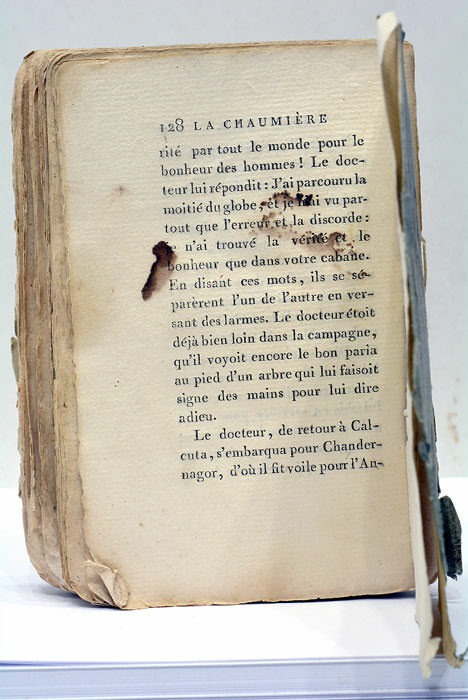 128 LA CHAUMIÈRE
rité par tout le monde pour le
bonheur des hommes ! Le doc-
teur lui répondit : J'ai parcouru la
moitié du globe, et je n'ai vu par-
tout que l'erreur et la discorde :
je n'ai trouvé la vérité et le
bonheur que dans votre cabane.
En disant ces mots, ils se sé-
parèrent l'un de l'autre en ver-
sant des larmes. Le docteur étoit
déjà bien loin dans la campagne,
qu'il voyoit encore le bon paria
au pied d'un arbre qui lui faisoit
signe des mains pour lui dire
adieu.
Le docteur, de retour à Cal-
cuta, s'embarqua pour Chander-
nagor, d'où il fit voile pour l'An-